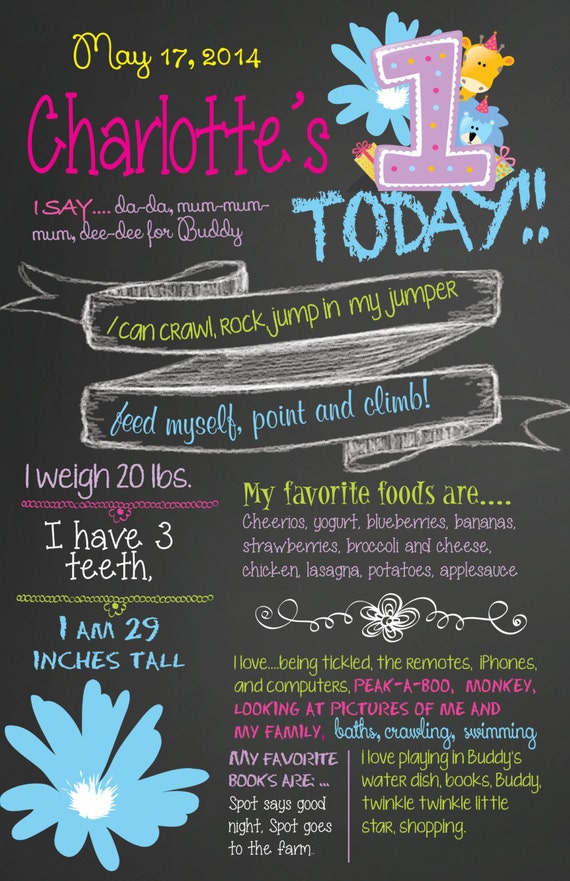 May 17, 2014
Charlotte's
1
TODAY!!
I SAY.... da-da, mum-mum-
mum, dee-dee for Buddy
I can crawl, rock jump in my jumper
feed myself, point and climb!
I weigh 20 lbs.
I have 3
teeth,
I AM 29
INCHES TALL
My favorite foods are....
Cheerios, yogurt, blueberries, bananas,
strawberries, broccoli and cheese,
chicken, lasagna, potatoes, applesauce
I love....being tickled, the remotes, iPhones,
and computers, PEAK-A-BOO, MONKEY,
LOOKING AT PICTURES OF ME AND
MY FAMILY, baths, crawling, swimming
MY FAVORITE
BOOKS ARE: ...
Spot says good
night, Spot goes
to the farm..
I love playing in Buddy's
water dish, books, Buddy,
twinkle twinkle little
star, shopping.